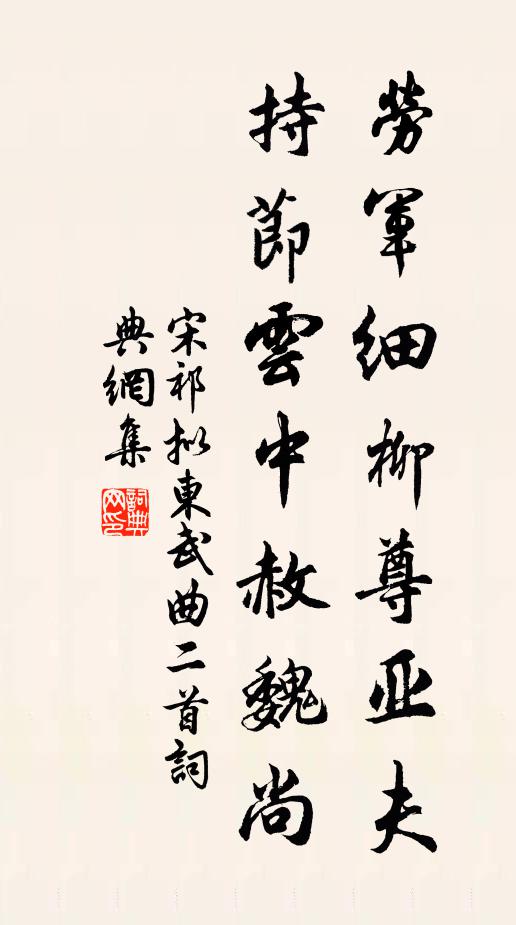 勞軍細柳尊亚夫
持節雲中赦魏尚
宋祁拟東武曲二首詞
典網集
詞典網印